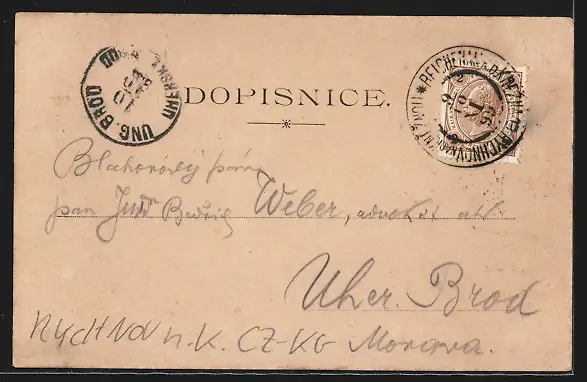 UNG. BROD
UHERSKÝ BROD
10
DOPISNICE.
REICHENAU A.D. KNĚŽNA
RYCHNOV N. KNĚŽNOU
9
97
Blahorodý pán
pan Judr Bedřig Weber, advokát atd.
Uher. Brod
RYCHNOV n. K. CZ-KG Morava.